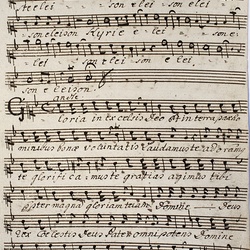 lei son e lei son elei
son eleison Kyrie e lei son e
lei son e lei son e lei
son e leison.
Gloria in excelsis Deo et in terra pax ho
minibus bonæ voluntatis laudamus te adoramus
te glorificamus te gratias agimus tibi
propter magnam gloriam tuam Domine Deus
Rex coelestis Deus Pater omnipotens Domine